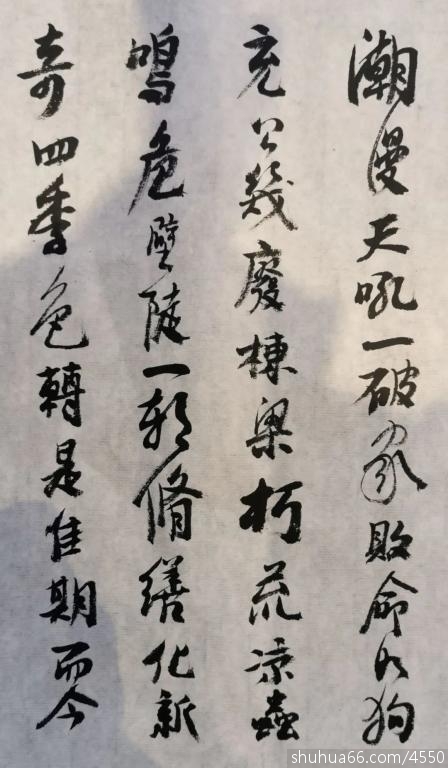 潮漫天吼一破家敗命如狗
充公幾廢棟梁朽荒凉蟲
鳴危壁陡一朝脩繕化新
奇四季色轉是佳期而今
shuhua66.com/4550